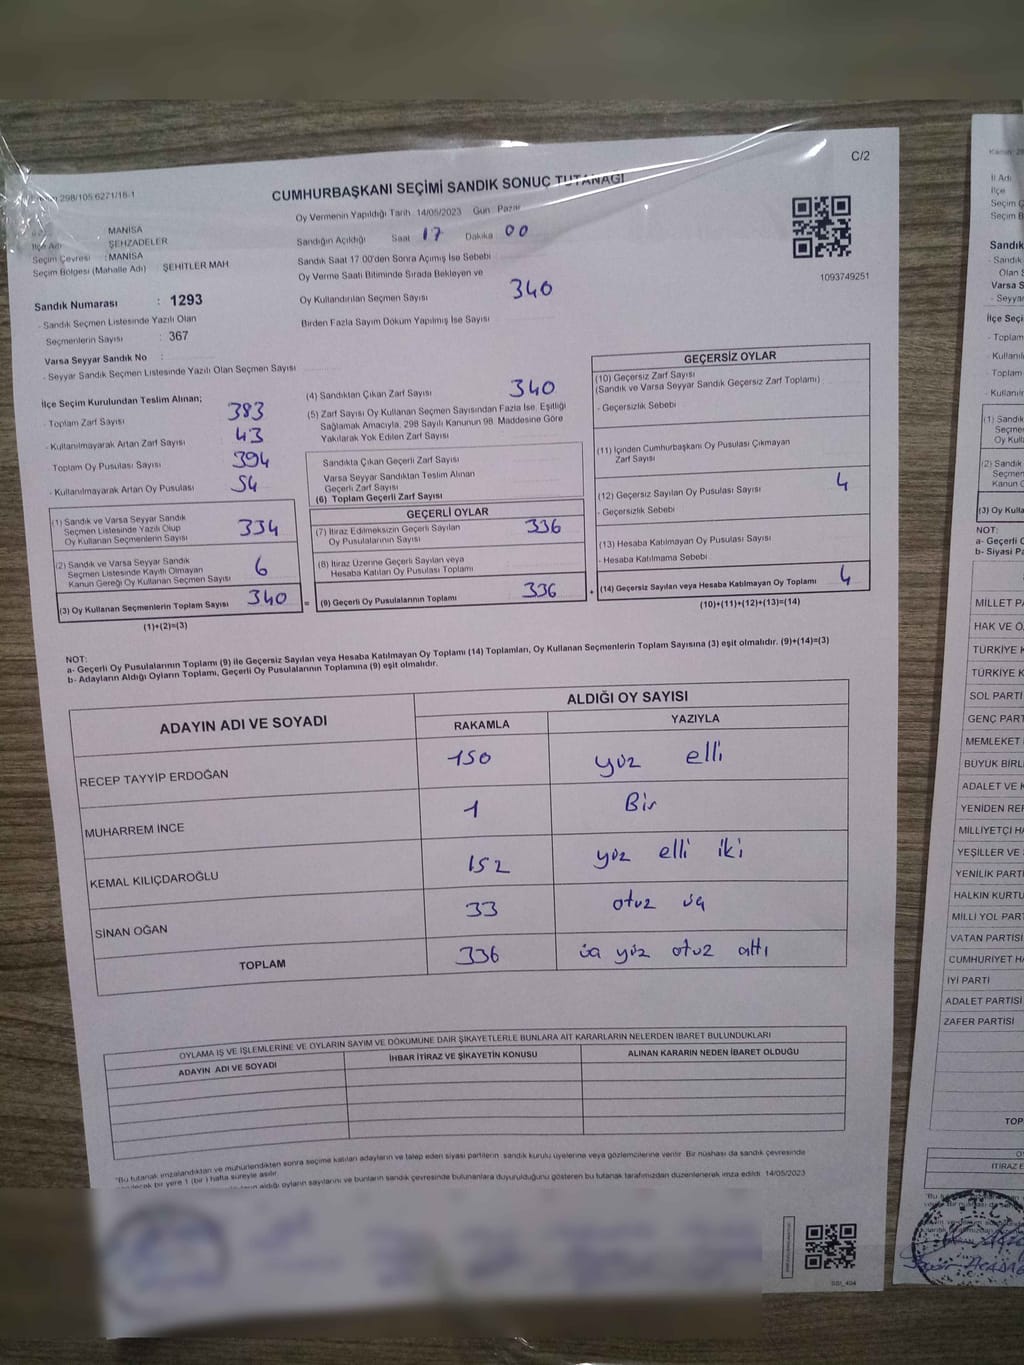 298/105.6271/16-1
C/2
CUMHURBAŞKANI SEÇİMİ SANDIK SONUÇ TUTANAĞI
MANİSA
İlçe Adı ŞEHZADELER
Seçim Çevresi : MANİSA
Seçim Bölgesi (Mahalle Adı) ŞEHİTLER MAH
Sandık Numarası : 1293
- Sandık Seçmen Listesinde Yazılı Olan
Seçmenlerin Sayısı : 367
Varsa Seyyar Sandık No :
- Seyyar Sandık Seçmen Listesinde Yazılı Olan Seçmen Sayısı
Oy Vermenin Yapıldığı Tarih 14/05/2023 Gün Pazar
Sandığın Açıldığı Saat 17 Dakika 00
Sandık Saat 17 00'den Sonra Açımış İse Sebebi
Oy Verme Saati Bitiminde Sırada Bekleyen ve
Oy Kullandırılan Seçmen Sayısı 340
Birden Fazla Sayım Döküm Yapılmış İse Sayısı
1093749251
İlçe Seçim Kurulundan Teslim Alınan;
- Toplam Zarf Sayısı 383
- Kullanılmayarak Artan Zarf Sayısı 43
- Toplam Oy Pusulası Sayısı 394
- Kullanılmayarak Artan Oy Pusulası 54
(1) Sandık ve Varsa Seyyar Sandık
Seçmen Listesinde Yazılı Olup
Oy Kullanan Seçmenlerin Sayısı 334
(2) Sandık ve Varsa Seyyar Sandık
Seçmen Listesinde Kayıtlı Olmayan
Kanun Gereği Oy Kullanan Seçmen Sayısı 6
(3) Oy Kullanan Seçmenlerin Toplam Sayısı 340 =
(1)+(2)=(3)
(4) Sandıktan Çıkan Zarf Sayısı 340
(5) Zarf Sayısı Oy Kullanan Seçmen Sayısından Fazla İse, Eşitliği
Sağlamak Amacıyla, 298 Sayılı Kanunun 98. Maddesine Göre
Yakılarak Yok Edilen Zarf Sayısı
Sandıkta Çıkan Geçerli Zarf Sayısı
Varsa Seyyar Sandıktan Teslim Alınan
Geçerli Zarf Sayısı
(6) Toplam Geçerli Zarf Sayısı
GEÇERLİ OYLAR
(7) İtiraz Edilmeksizin Geçerli Sayılan
Oy Pusulalarının Sayısı 336
(8) İtiraz Üzerine Geçerli Sayılan veya
Hesaba Katılan Oy Pusulası Toplamı
(9) Geçerli Oy Pusulalarının Toplamı 336 +
GEÇERSİZ OYLAR
(10) Geçersiz Zarf Sayısı
(Sandık ve Varsa Seyyar Sandık Geçersiz Zarf Toplamı)
- Geçersizlik Sebebi
(11) İçinden Cumhurbaşkanı Oy Pusulası Çıkmayan
Zarf Sayısı
(12) Geçersiz Sayılan Oy Pusulası Sayısı 4
- Geçersizlik Sebebi
(13) Hesaba Katılmayan Oy Pusulası Sayısı
- Hesaba Katılmama Sebebi
(14) Geçersiz Sayılan veya Hesaba Katılmayan Oy Toplamı 4
(10)+(11)+(12)+(13)=(14)
NOT:
a- Geçerli Oy Pusulalarının Toplamı (9) ile Geçersiz Sayılan veya Hesaba Katılmayan Oy Toplamı (14) Toplamları, Oy Kullanan Seçmenlerin Toplam Sayısına (3) eşit olmalıdır. (9)+(14)=(3)
b- Adayların Aldığı Oyların Toplamı, Geçerli Oy Pusulalarının Toplamına (9) eşit olmalıdır.
ADAYIN ADI VE SOYADI ALDIĞI OY SAYISI
RAKAMLA YAZIYLA
RECEP TAYYİP ERDOĞAN 150 yüz elli
MUHARREM İNCE 1 Bir
KEMAL KILIÇDAROĞLU 152 yüz elli iki
SİNAN OĞAN 33 otuz üç
TOPLAM 336 üç yüz otuz altı
OYLAMA İŞ VE İŞLEMLERİNE VE OYLARIN SAYIM VE DÖKÜMÜNE DAİR ŞİKAYETLERLE BUNLARA AİT KARARLARIN NELERDEN İBARET BULUNDUKLARI
ADAYIN ADI VE SOYADI İHBAR İTİRAZ VE ŞİKAYETİN KONUSU ALINAN KARARIN NEDEN İBARET OLDUĞU
"Bu tutanak imzalandıktan ve mühürlendikten sonra seçime katılan adayların ve talep eden siyasi partilerin sandık kurulu üyelerine veya gözlemcilerine verilir. Bir nüshası da sandık çevresinde
bir yere 1 (bir) hafta süreyle asılır.
aldığı oyların sayılarını ve bunların sandık çevresinde bulunanlara duyurulduğunu gösteren bu tutanak tarafımızdan düzenlenerek imza edildi. 14/05/2023
SSt_404
İl Adı
İlçe
Seçim Ç
Seçim B
Sandık
- Sandık
Olan S
Varsa S
- Seyya
İlçe Seçi
- Toplam
- Kullanıl
- Toplam
- Kullanıl
(1) Sandık
Seçme
Oy Kull
(2) Sandık
Seçmen
Kanun G
(3) Oy Kulla
NOT:
a- Geçerli O
b- Siyasi Pa
MİLLET PA
HAK VE Ö
TÜRKİYE K
TÜRKİYE K
SOL PARTİ
GENÇ PART
MEMLEKET
BÜYÜK BİRL
ADALET VE K
YENİDEN REF
MİLLİYETÇİ HA
YEŞİLLER VE
YENİLİK PARTİ
HALKIN KURTU
MİLLİ YOL PAR
VATAN PARTİSİ
CUMHURİYET HA
İYİ PARTİ
ADALET PARTİSİ
ZAFER PARTİSİ
TOP
İTİRAZ E